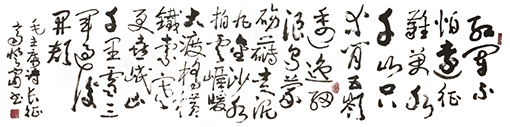 红军不
怕远征
难万水
千山只
等闲五岭
逶迤细
浪乌蒙
磅礴走泥
丸金沙水
拍云崖暖
大渡桥横
铁索寒
更喜岷山
千里雪三
军过后
尽开颜
毛主席诗长征